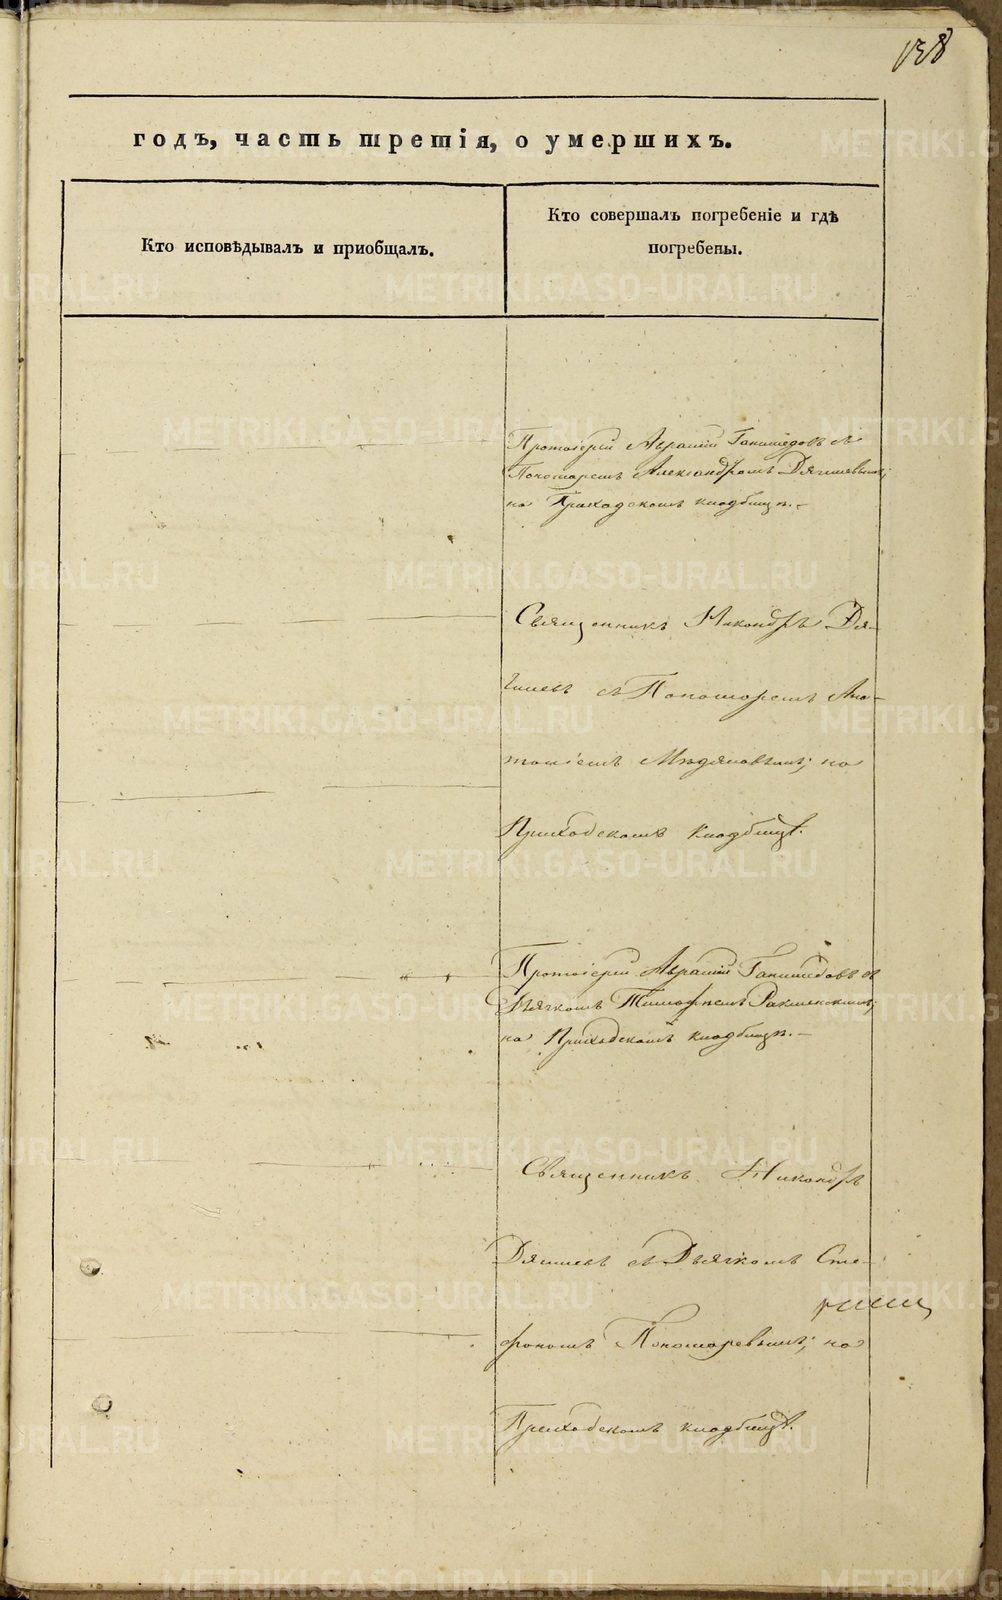 138
годъ, часть третія, о умершихъ.
Кто исповѣдывалъ и приобщалъ.
Кто совершалъ погребеніе и гдѣ
погребены.
Протоіерей Авраамій Ганимедовъ съ
Пономаремъ Александромъ Дягилевымъ;
на Приходскомъ кладбищѣ.
Священникъ Никандръ Дя-
гилевъ съ Пономаремъ Ана-
толіемъ Мѣдяковымъ; на
Приходскомъ кладбищѣ.
Протоіерей Авраамій Ганимедовъ съ
Дьячкомъ Тимофеемъ
на Приходскомъ кладбищѣ.
Священникъ Никандръ
Дягилевъ съ Дьячкомъ Сте-
фаномъ Пономаревымъ; на
Приходскомъ кладбищѣ.
METRIKI.GASO-URAL.RU